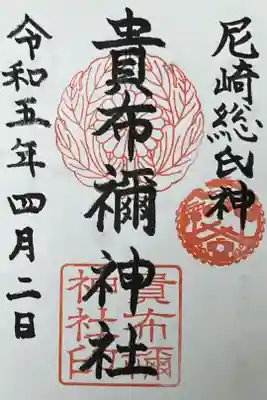 尼崎総氏神
貴布禰神社
令和五年四月二日
貴布禰
神社印